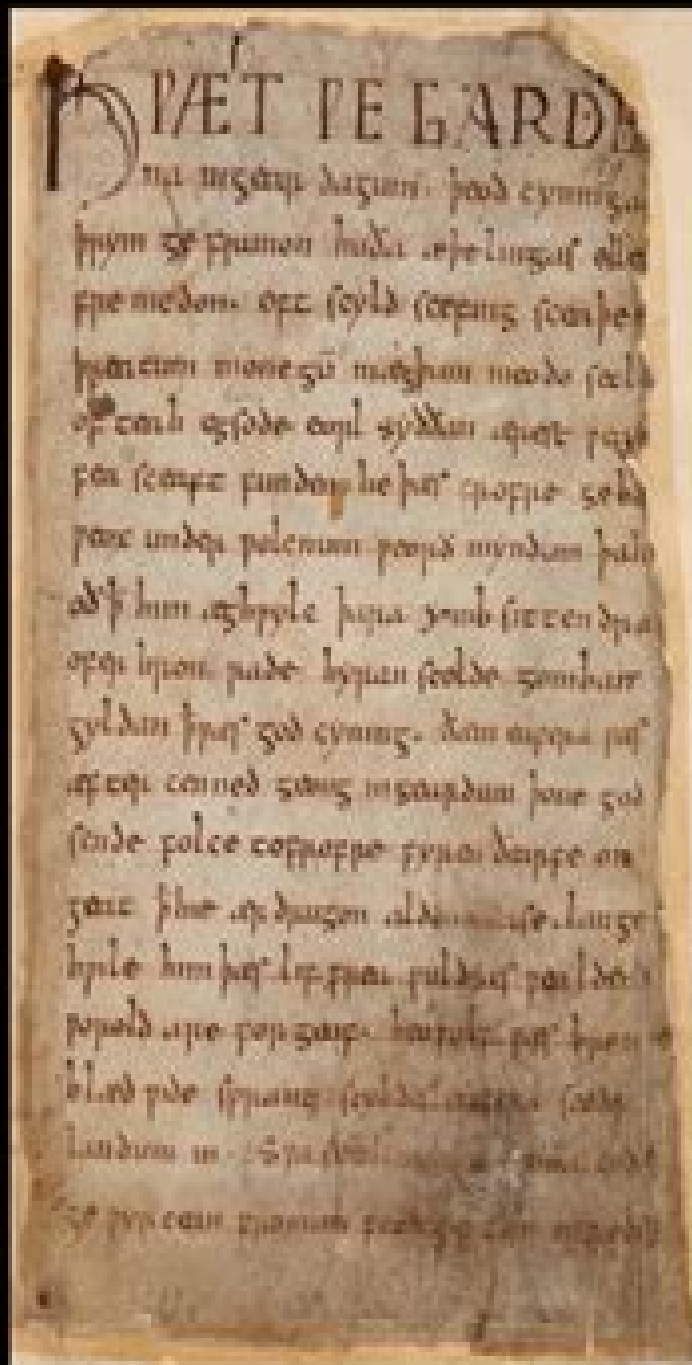 HǷÆT ǷE GARDE
na ingear dagum. þeod cyninga
þrym ge frunon huða æþelingas elle
fremedon. oft scyld scefing sceaþe
þreatum monegū mægþum meodo setl
of teah egsode eorl syððan ærest ƿear
fea sceaft funden he þæs frofre geba
ƿeox under ƿolcnum ƿeorð myndum þah
oð þ him æghƿylc þara ymb sittendra
ofer hron rade hyran scolde gomban
gyldan þæt ƿæs god cyning. ðæm eafera ƿæs
æfter cenned geong in geardum þone god
sende folce tofrofre fyren ðearfe on
geat þ hie ær drugon aldor ase. lange
hƿile him þæs lif frea ƿuldres ƿealdend
ƿorold are for geaf. beoƿulf ƿæs breme
blæd ƿide sprang scyldes eafera scede
landum in.
ge ƿyrcean fromum feoh giftum